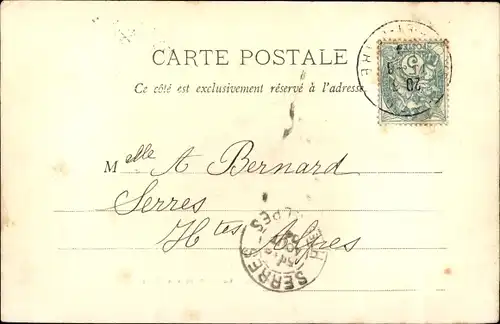 CARTE POSTALE
Ce côté est exclusivement réservé à l'adresse
Melle A Bernard
Serres
Htes Alpes
SERRES